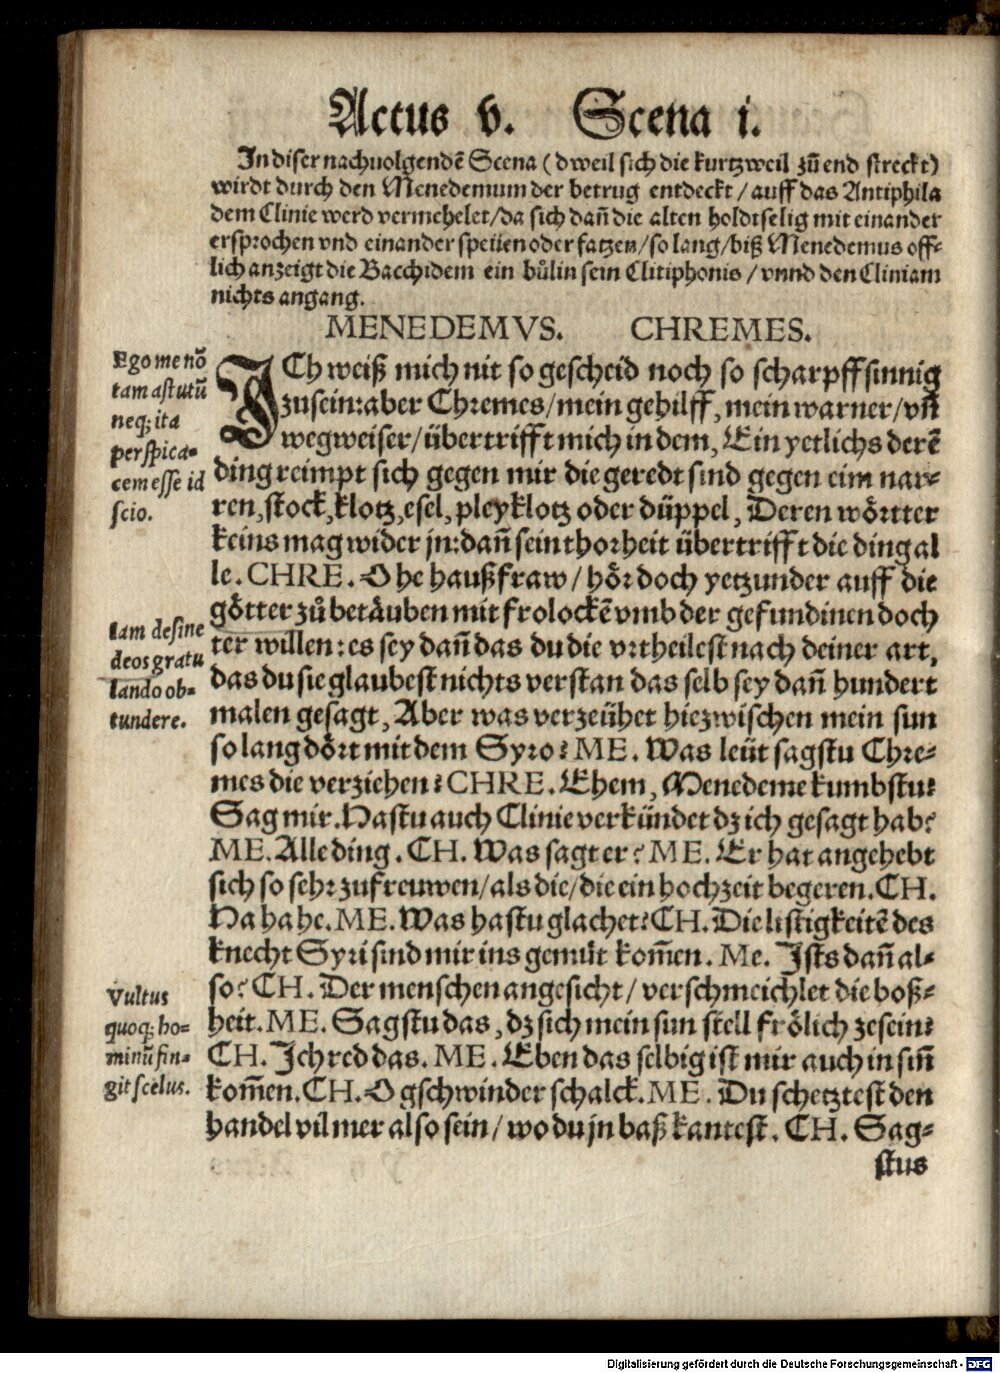 Actus v. Scena i.
In diser nachuolgendē Scena (dweil sich die kurtzweil zů end streckt)
wirdt durch den Menedemum der betrug entdeckt / auff das Antiphila
dem Clinie werd vermehelet/da sich dañ die alten holdtselig mit einander
ersprochen vnd einander speiien oder fatzen/so lang/biß Menedemus off-
lich anzeigt die Bacchidem ein bůlin sein Clitiphonis / vnnd den Cliniam
nichts angang.
MENEDEMVS. CHREMES.
Ego me nō
tam astutū
neq; ita
perspica-
cem esse id
scio.
ICh weiß mich nit so gescheid noch so scharpffsinnig
zu sein:aber Chremes/mein gehilff, mein warner/vñ
wegweiser/übertrifft mich in dem, Ein yetlichs derē
ding reimpt sich gegen mir die geredt sind gegen eim nar-
ren,stock,klotz,esel,pleyklotz oder düppel, Deren wörtter
keins mag wider jn:dañ sein thorheit übertrifft die ding al
le. CHRE. O he haußfraw / hör doch yetzunder auff die
götter zů betäuben mit frolockē vmb der gefundinen doch
Iam desine
deos gratu
lando ob-
tundere.
ter willen:es sey dañ das du die vrtheilest nach deiner art,
das du sie glaubest nichts verstan das selb sey dañ hundert
malen gesagt, Aber was verzeühet hiezwischen mein sun
so lang dört mit dem Syro? ME. Was leüt sagstu Chre-
mes die verziehen? CHRE. Ehem, Menedeme kumbstu?
Sag mir. Hastu auch Clinie verkündet dz ich gesagt hab?
ME. Alle ding. CH. Was sagt er? ME. Er hat angehebt
sich so sehr zufreuwen/als die/die ein hochzeit begeren. CH.
Ha ha he. ME. Was hastu glachet? CH. Die listigkeitē des
knecht Syri sind mir ins gemüt kom̄en. Me. Ists dañ al-
so? CH. Der menschen angesicht / verschmeichlet die boß-
Vultus
quoq; ho-
minū fin-
git scelus.
heit. ME. Sagstu das, dz sich mein sun stell frölich ze sein?
CH. Ich red das. ME. Eben das selbig ist mir auch in siñ
kom̄en. CH. O gschwinder schalck. ME. Du schetztest den
handel vil mer also sein / wo du jn baß kantest. CH. Sag-
stus
Digitalisierung gefördert durch die Deutsche Forschungsgemeinschaft - DFG